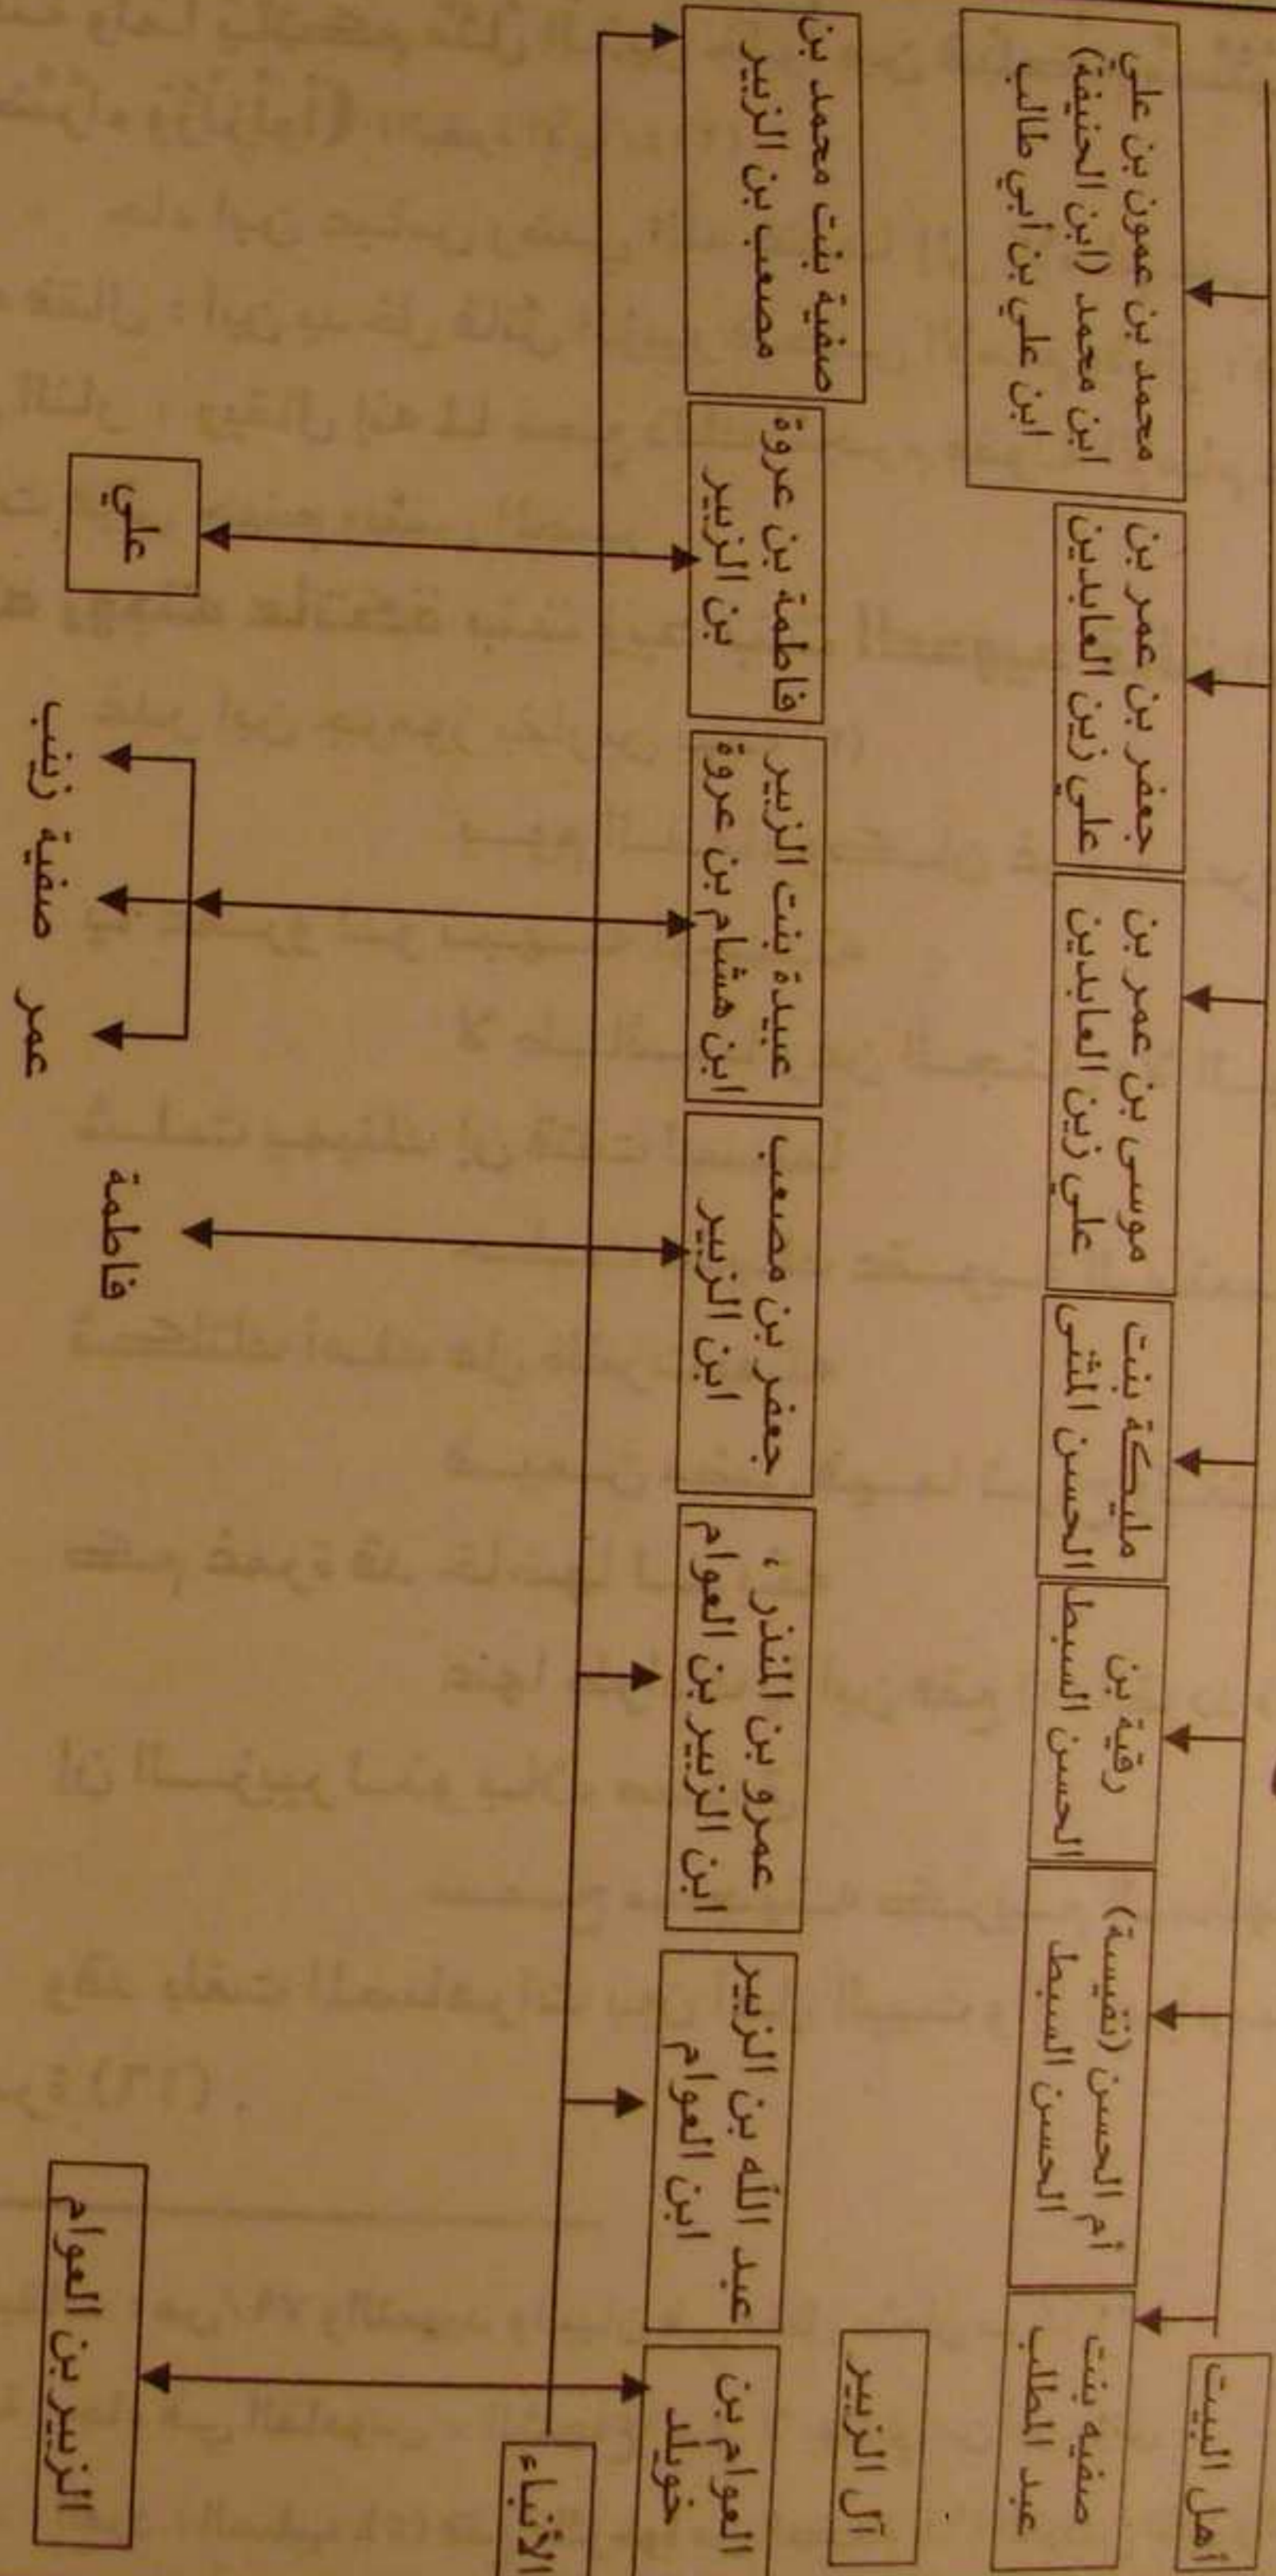 أهل البيت
صفيه بنت
عبد المطلب
أم الحسن (نفيسة)
الحسن السبط
رقية بن
الحسن السبط
مليكة بنت
الحسن المثنى
موسى بن عمر بن
علي زين العابدين
جعفر بن عمر بن
علي زين العابدين
محمد بن عمون بن علي
ابن محمد (ابن الحنيفة)
ابن علي بن أبي طالب
آل الزبير
العوام بن
خويلد
عبد الله بن الزبير
ابن العوام
عمرو بن المنذر ،
ابن الزبير بن العوام
جعفر بن مصعب
ابن الزبير
عبيدة بنت الزبير
ابن هشام بن عروة
فاطمة بن عروة
بن الزبير
صفية بنت محمد بن
مصعب بن الزبير
الأنباء
الزبير بن العوام
فاطمة
عمر صفية زينب
علي